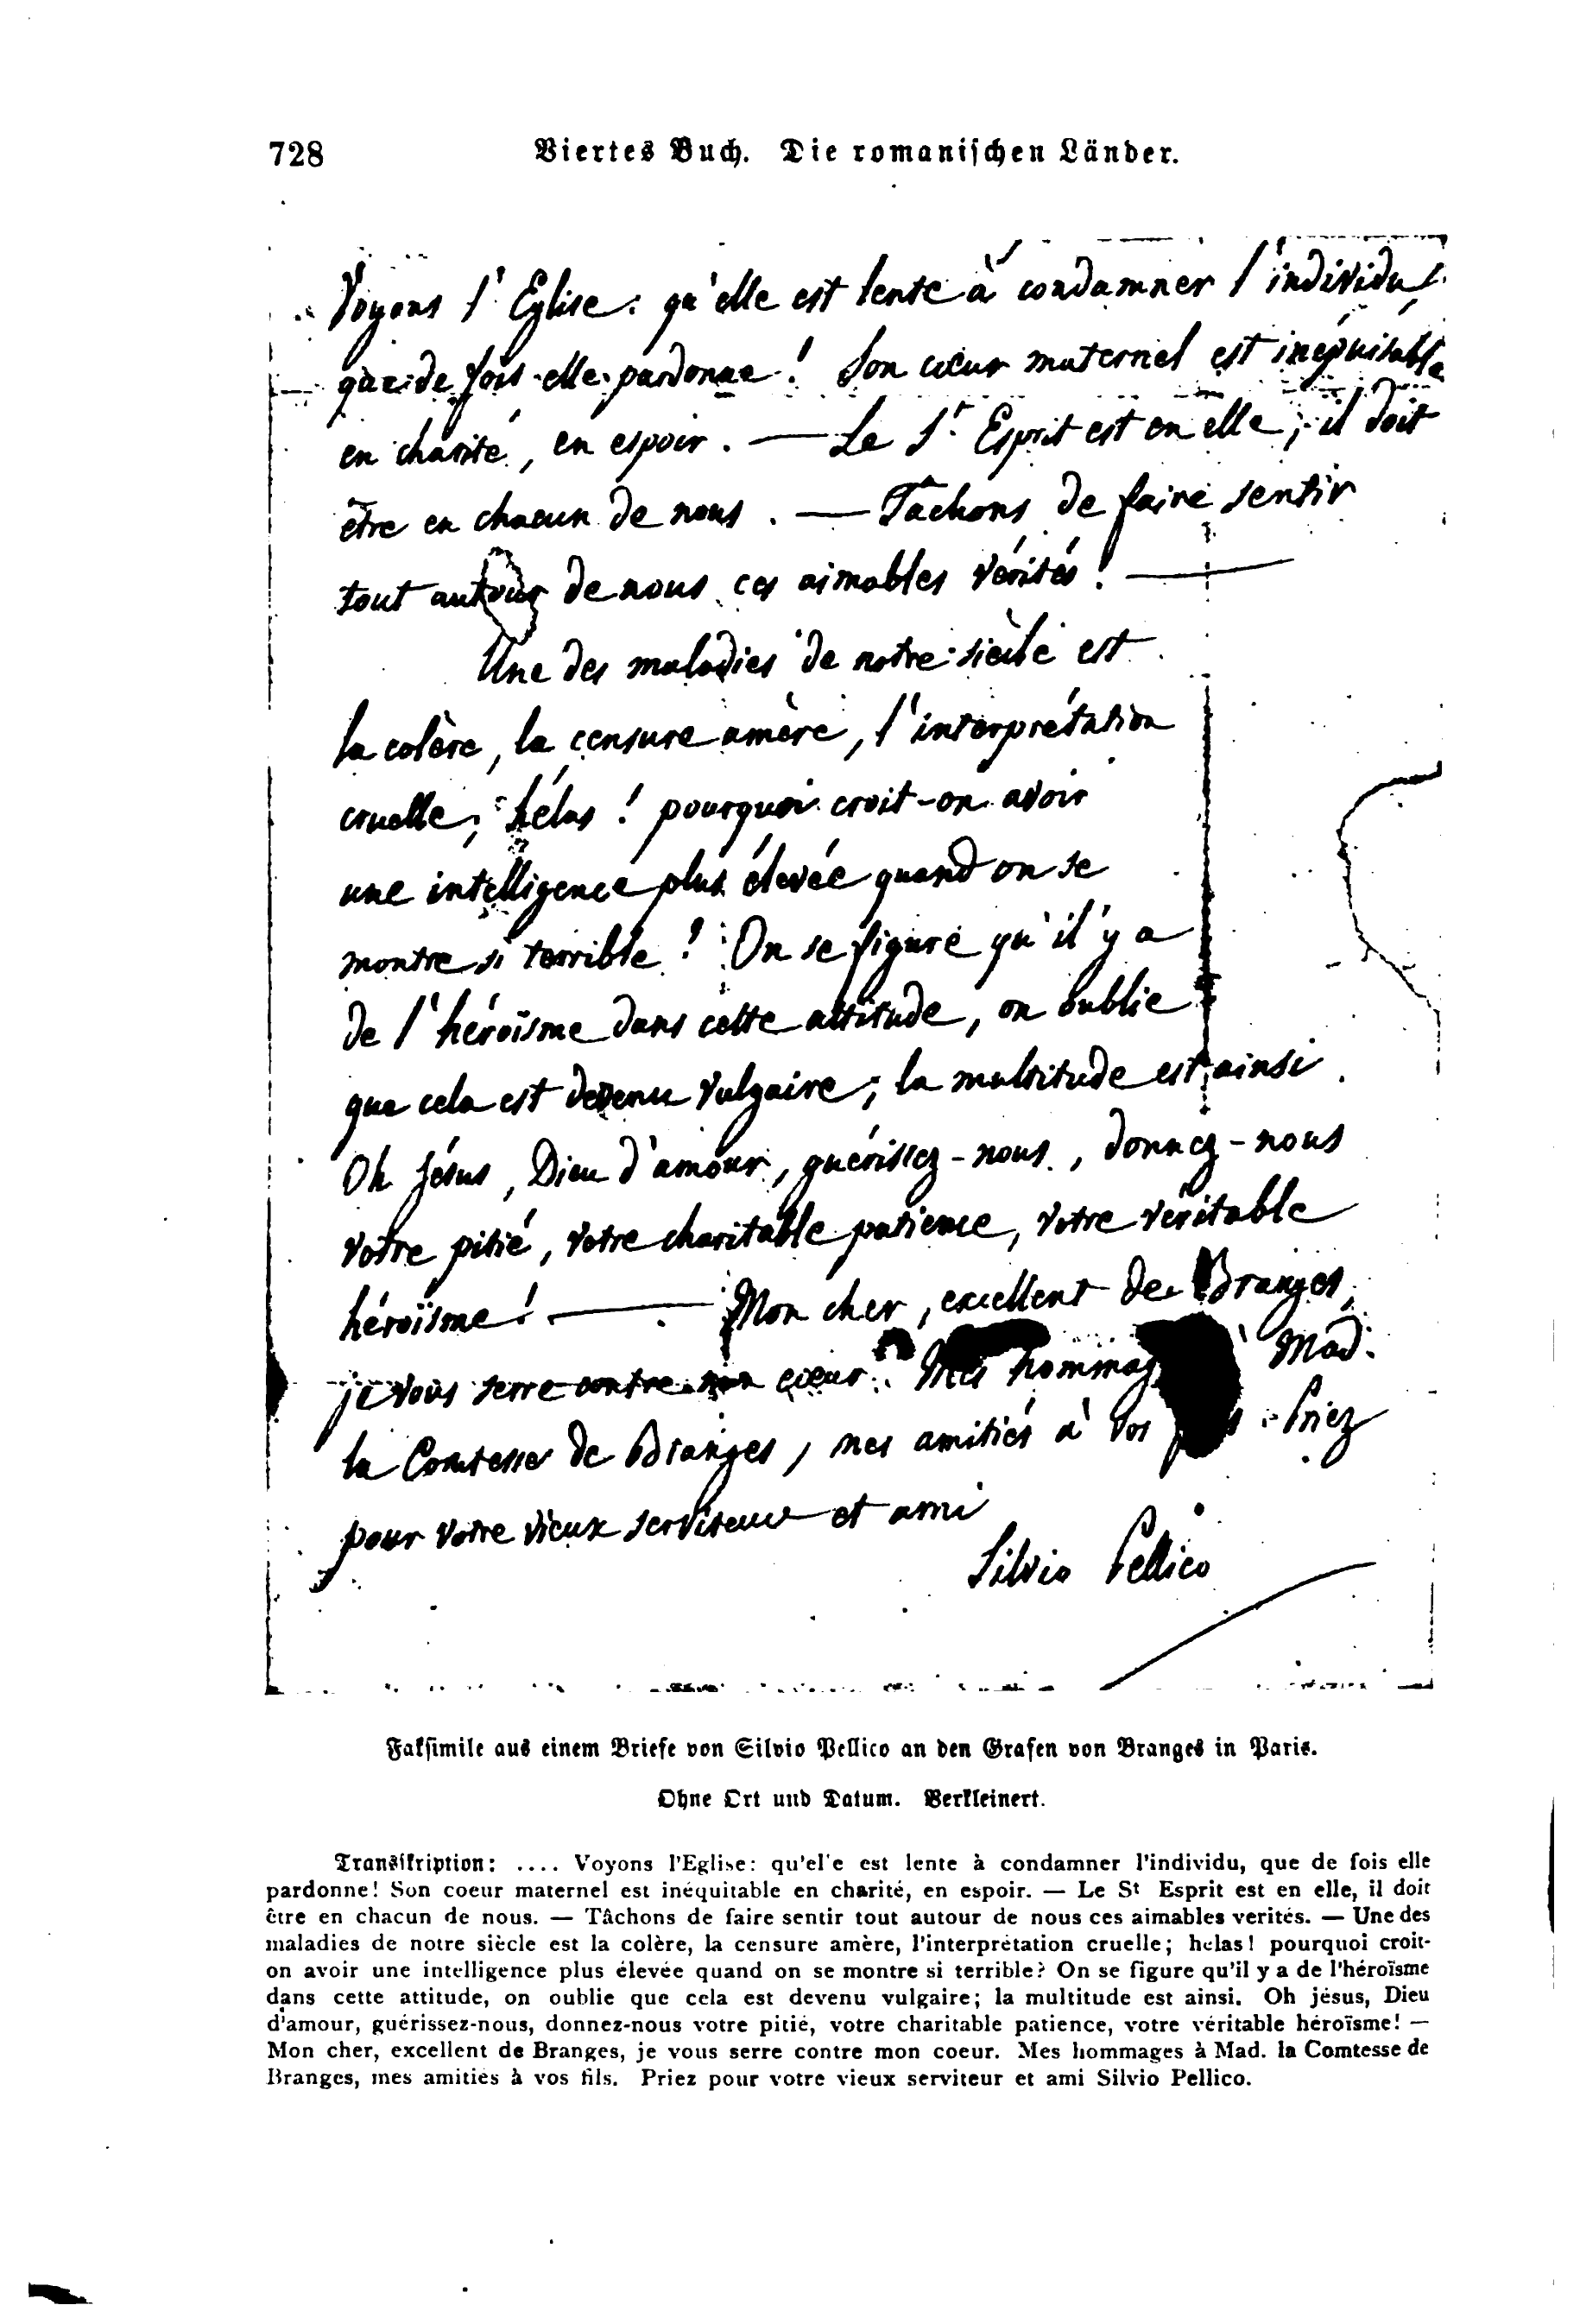 728
Viertes Buch. Die romanischen Länder.
Voyons l'Eglise: qu'elle est lente à condamner l'individu,
que de fois elle pardonne! Son cœur maternel est inépuisable
en charité, en espoir. — Le St Esprit est en elle; il doit
être en chacun de nous. — Tâchons de faire sentir
tout autour de nous ces aimables vérités! —
Une des maladies de notre siècle est
la colère, la censure amère, l'interprétation
cruelle; hélas! pourquoi croit-on avoir
une intelligence plus élevée quand on se
montre si terrible? On se figure qu'il y a
de l'héroïsme dans cette attitude, on oublie
que cela est devenu vulgaire; la multitude est ainsi.
Oh Jésus, Dieu d'amour, guérissez-nous, donnez-nous
votre pitié, votre charitable patience, votre véritable
héroïsme! — Mon cher, excellent de Branges,
je vous serre contre mon cœur. Mes hommag à Mad.
la Comtesse de Branges, mes amitiés à vos Priez
pour votre vieux serviteur et ami
Silvio Pellico
Faksimile aus einem Briefe von Silvio Pellico an den Grafen von Branges in Paris.
Ohne Ort und Datum. Verkleinert.
Transkription: .... Voyons l'Eglise: qu'el'e est lente à condamner l'individu, que de fois elle
pardonne! Son coeur maternel est inéquitable en charité, en espoir. — Le St Esprit est en elle, il doit
être en chacun de nous. — Tâchons de faire sentir tout autour de nous ces aimables verités. — Une des
maladies de notre siècle est la colère, la censure amère, l'interprétation cruelle; helas! pourquoi croit-
on avoir une intelligence plus élevée quand on se montre si terrible? On se figure qu'il y a de l'héroïsme
dans cette attitude, on oublie que cela est devenu vulgaire; la multitude est ainsi. Oh jésus, Dieu
d'amour, guérissez-nous, donnez-nous votre pitié, votre charitable patience, votre véritable héroïsme! —
Mon cher, excellent de Branges, je vous serre contre mon coeur. Mes hommages à Mad. la Comtesse de
Branges, mes amitiés à vos fils. Priez pour votre vieux serviteur et ami Silvio Pellico.